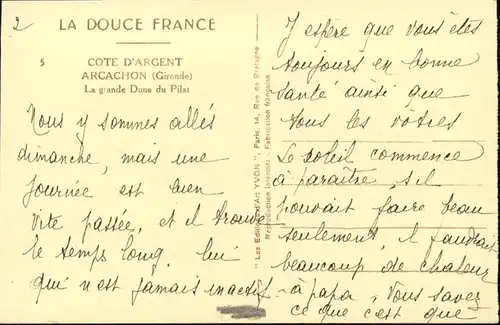 2
LA DOUCE FRANCE
5
COTE D'ARGENT
ARCACHON (Gironde)
La grande Dune du Pilat
Nous y sommes allés
dimanche, mais une
journée est bien
vite passée, et il trouve
le temps long, lui
qui n'est jamais inactif
"Les Editions d'Art YVON", Paris, 14, Rue de Bretagne
Reproduction Interdite - Fabrication française
J'espère que vous êtes
toujours en bonne
santé ainsi que
tous les vôtres
Le soleil commence
à paraître, s'il
pouvait faire beau
seulement, il faudrait
beaucoup de chaleur
à papa, Vous savez
ce que c'est que